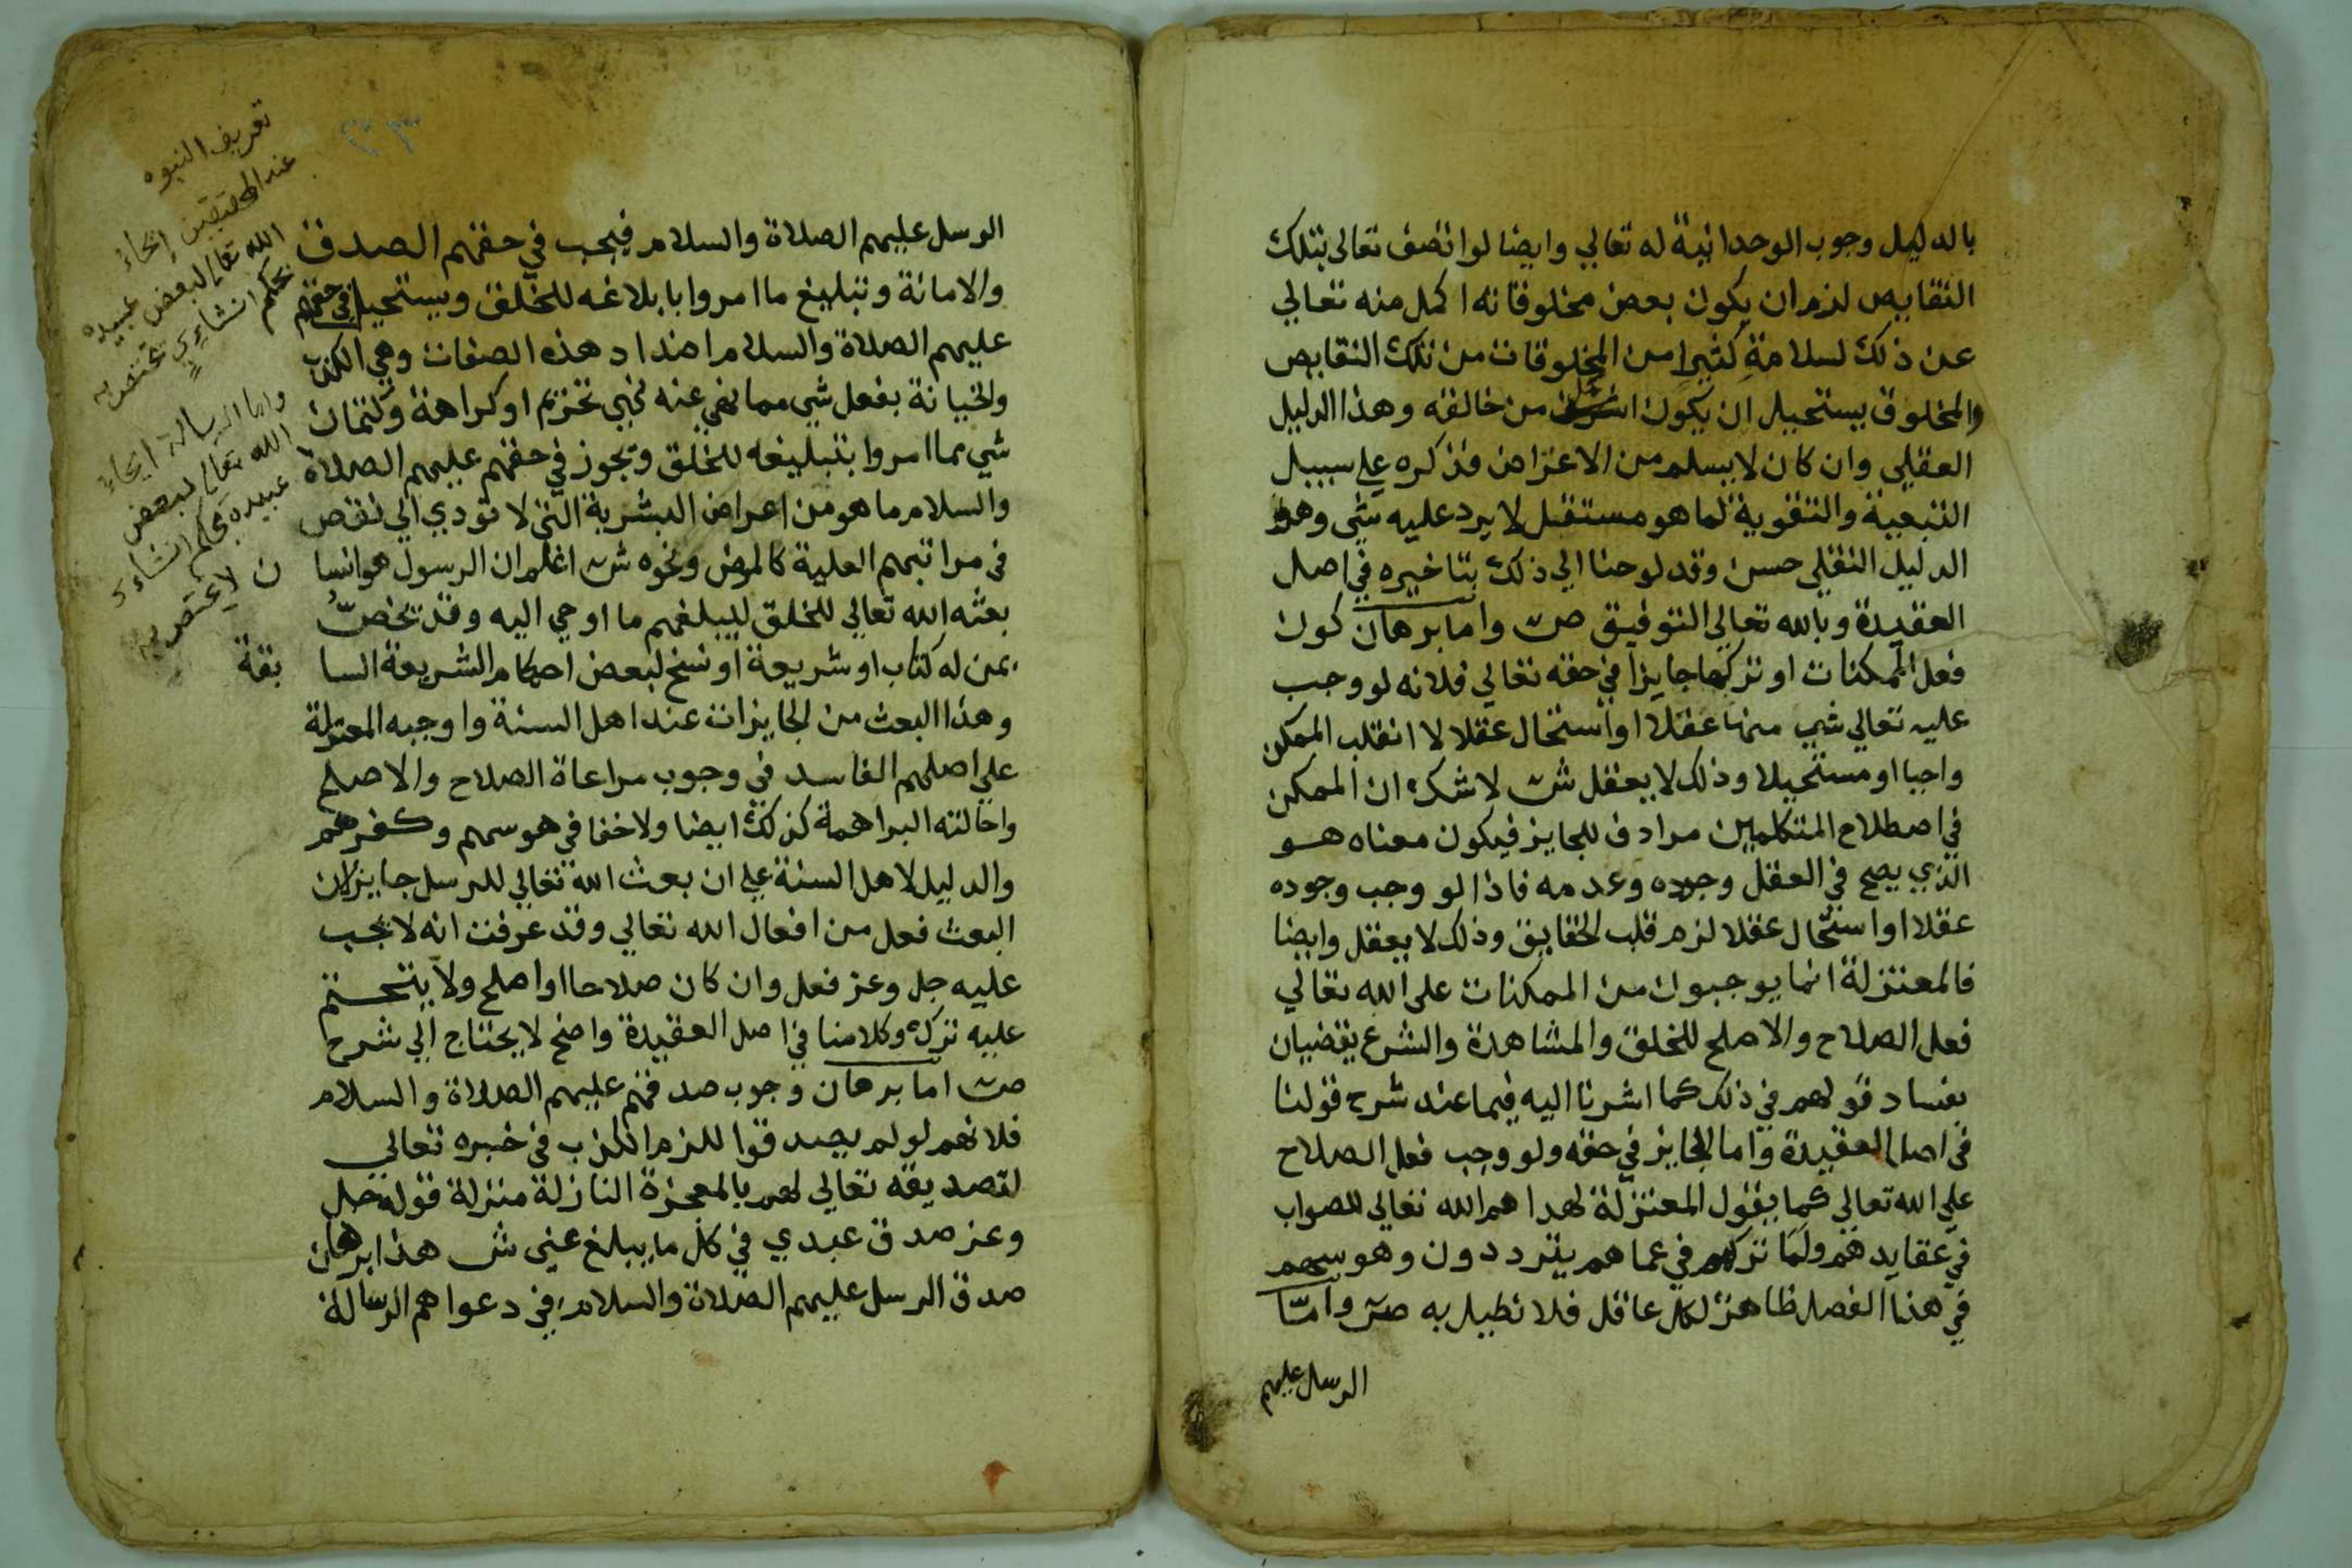 بالدليل وجوب الوحدانية له تعالي وايضا لو اتصف تعالى بتلك
النقايص لزم ان يكون بعض مخلوقاته اكمل منه تعالي
عن ذلك لسلامة كثير من المخلوقات من تلك النقايص
والمخلوق يستحيل ان يكون اشرف من خالقه وهذا الدليل
العقلي وان كان لا يسلم من الاعتراض فذكره علي سبيل
التبعية والتقوية لما هو مستقل لا يرد عليه شي وهو
الدليل النقلي حسن وقد لوحنا الي ذلك بتاخيره في اصل
العقيدة وبالله تعالي التوفيق ص واما برهان كون
فعل الممكنات او تركها جايزا في حقه تعالي فلانه لو وجب
عليه تعالي شي منها عقلا او استحال عقلا لا انقلب الممكن
واجبا او مستحيلا وذلك لا يعقل ش لا شك ان الممكن
في اصطلاح المتكلمين مرادف للجايز فيكون معناه هو
الذي يصح في العقل وجوده وعدمه فاذا لو وجب وجوده
عقلا او استحال عقلا لزم قلب الحقايق وذلك لا يعقل وايضا
فالمعتزلة انما يوجبون من الممكنات على الله تعالي
فعل الصلاح والاصلح للخلق والمشاهدة والشرع يقضيان
بفساد قولهم في ذلك كما اشرنا اليه فيما عند شرح قولنا
في اصل العقيدة واما الجايز في حقه ولو وجب فعل الصلاح
علي الله تعالي كما يقول المعتزلة لهداهم الله تعالي للصواب
في عقايدهم ولما تركهم في عماهم يترددون وهوسهم
في هذا الفصل ظاهر لكل عاقل فلا نطيل به ص واما
الرسل عليهم
الرسل عليهم الصلاة والسلام فيجب في حقهم الصدق
والامانة وتبليغ ما امروا بابلاغه للخلق ويستحيل في حقهم
عليهم الصلاة والسلام اضداد هذه الصفات وهي الكذب
والخيانة بفعل شي مما نهي عنه نهي تحريم او كراهة وكتمان
شي مما امروا بتبليغه للخلق ويجوز في حقهم عليهم الصلاة
والسلام ما هو من اعراض البشرية التي لا تودي الي نقص
في مراتبهم العلية كالمرض ونحوه ش اعلم ان الرسول هو انسا ن
بعثه الله تعالي للخلق ليبلغهم ما اوحي اليه وقد يخص
بمن له كتاب او شريعة او نسخ لبعض احكام الشريعة السا بقة
وهذا البعث من الجايزات عند اهل السنة واوجبه المعتزلة
علي اصلهم الفاسد في وجوب مراعاة الصلاح والاصلح
واحالته البراهمة كذلك ايضا ولا خفا في هوسهم وكفرهم
والدليل لاهل السنة علي ان بعث الله تعالي للرسل جايز لان
البعث فعل من افعال الله تعالي وقد عرفت انه لا يجب
عليه جل وعز فعل وان كان صلاحا او اصلح ولا يتحتم
عليه ترك وكلامنا في اصل العقيدة واضح لا يحتاج الي شرح
ص اما برهان وجوب صدقهم عليهم الصلاة والسلام
فلانهم لو لم يصدقوا للزم الكذب في خبره تعالي
لتصديقه تعالي لهم بالمعجزة النازلة منزلة قوله جل
وعز صدق عبدي في كل ما يبلغ عني ش هذا برهان
صدق الرسل عليهم الصلاة والسلام في دعواهم الرسالة
تعريف النبوه
عند المحققين إيحاء
الله تعالى لبعض عبيده
بحكم انشاءي يختص به
واما الرسالة ايحاء
الله تعالى لبعض
عبيده بحكم انشاءي
لا يختص به
٢٣